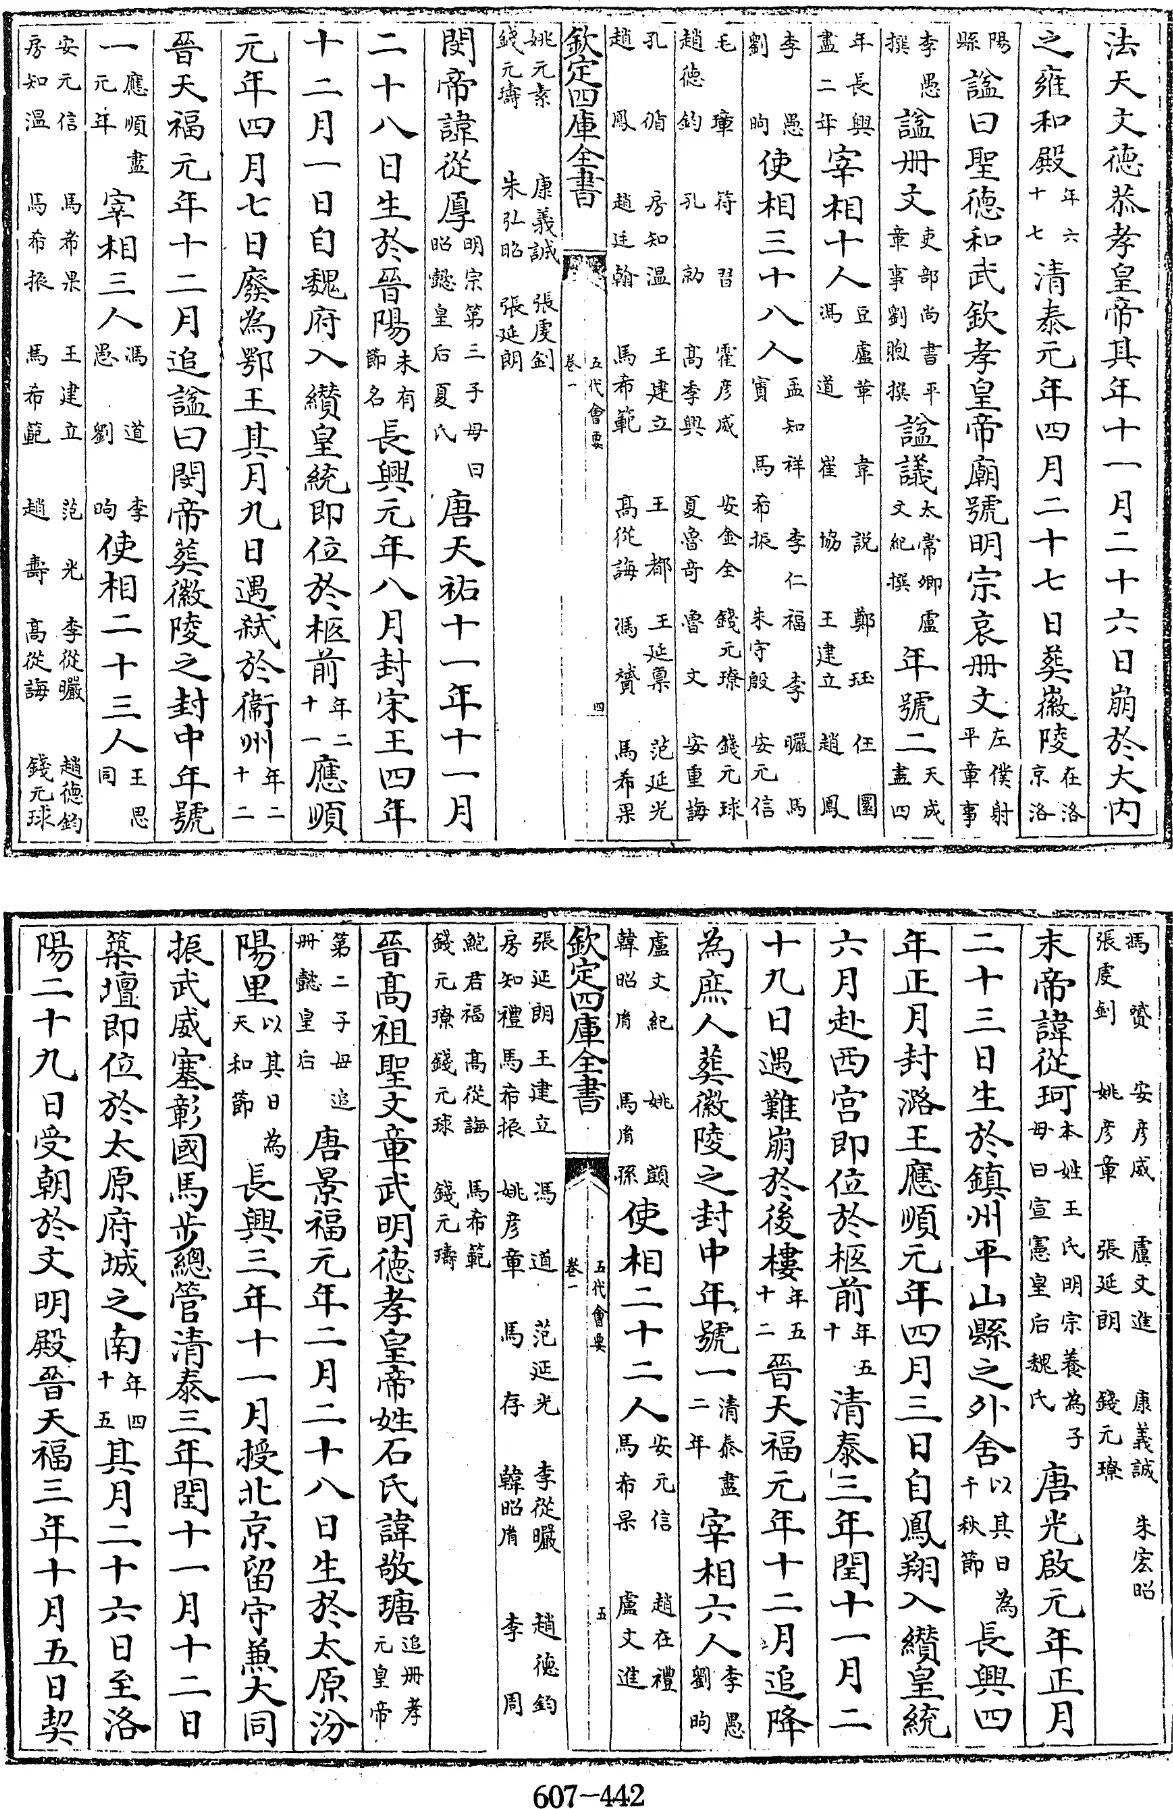 法天文德恭孝皇帝其年十一月二十六日崩於大内
之雍和殿年六十七清泰元年四月二十七日葬徽陵在洛京洛
陽縣諡曰聖德和武欽孝皇帝廟號明宗哀册文左僕射平章事
李愚撰諡册文吏部尚書平章事劉昫撰諡議太常卿盧文紀撰年號二天成盡四
年長興盡二年宰相十人豆盧革 韋説 鄭珏 任圜 馮道 崔協 王建立 趙鳳
李愚 劉昫使相三十八人孟知祥 李仁福 李曮 馬賓 馬希振 朱守殷 安元信
毛璋 符習 霍彦威 安金全 錢元璙 錢元球
趙德鈞 孔勍 髙季興 夏魯奇 魯文 安重誨
孔循 房知温 王建立 王都 王延禀 范延光
趙鳳 趙廷翰 馬布範 髙從誨 馮贇 馬希果
欽定四庫全書 五代會要 卷一 四
姚元素 康義誠 張虔釗
錢元璹 朱弘昭 張延朗
閔帝諱從厚明宗第三子母曰昭懿皇后夏氏唐天祐十一年十一月
二十八日生於晉陽未有節名長興元年八月封宋王四年
十二月一日自魏府入纉皇統即位於柩前年二十一應順
元年四月七日廢為鄂王其月九日遇弑於衞州年二十二
晉天福元年十二月追諡曰閔帝葬徽陵之封中年號
一應順盡一元年宰相三人馮道 李愚 劉昫使相二十三人王思同
安元信 馬希果 王建立 范光 李從曮 趙德鈞
房知温 馬希振 馬布範 趙壽 髙從誨 錢元球
馮贇 安彦威 盧文進 康義誠 朱宏昭
張虔釗 姚彦章 張延朗 錢元璙
末帝諱從珂本姓王氏明宗養為子母曰宣憲皇后魏氏唐光啟元年正月
二十三日生於鎮州平山縣之外舍以其日為千秋節長興四
年正月封潞王應順元年四月三日自鳳翔入纉皇統
六月赴西宫即位於柩前年五十清泰三年閏十一月二
十九日遇難崩於後樓年五十二晉天福元年十二月追降
為庶人葬徽陵之封中年號一清泰盡二年宰相六人李愚 劉昫
盧文紀 姚顗 韓昭𦙍 馬𦙍孫使相二十二人安元信 趙在禮 馬布果 盧文進
欽定四庫全書 五代會要 卷一 五
張延朗 王建立 馮道 范延光 李從曮 趙德鈞
房知禮 馬布振 姚彦章 馬存 韓昭𦙍 李周
鮑君福 髙從誨 馬布範
錢元璙 錢元球 錢元璹
晉髙祖聖文章武明德孝皇帝姓石氏諱敬瑭追册孝元皇帝
第二子母追册懿皇后唐景福元年二月二十八日生於太原汾
陽里以其日為天和節長興三年十一月授北京留守兼大同
振武威塞彰國馬步總管清泰三年閏十一月十二日
築壇即位於太原府城之南年四十五其月二十六日至洛
陽二十九日受朝於文明殿晉天福三年十月五日契
607-442